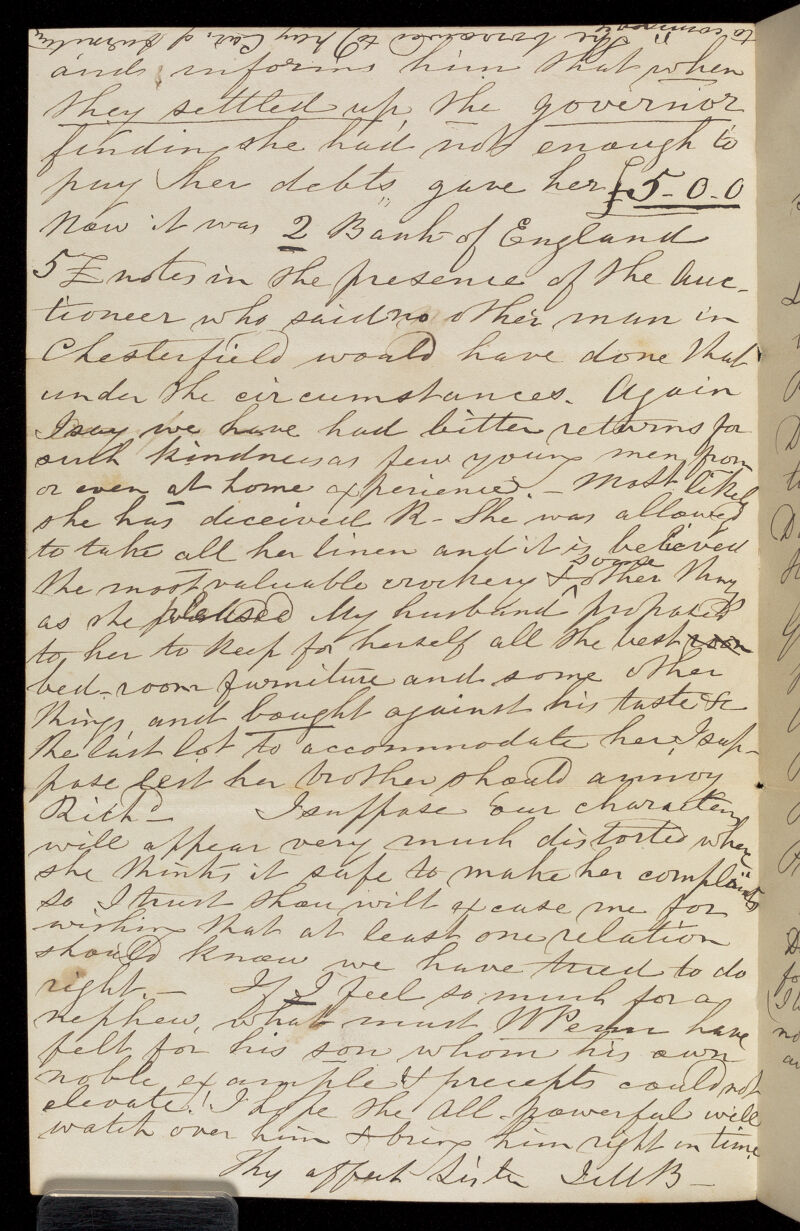 and informs him that when
they settled up, the governor
finding she had not enough to
pay her debts" gave her £5-0-0
Now it was 2 Bank of England
5£ notes in the presence of the Auc-
tioneer who said no other man in
Chesterfield would have done that
under the circumstances. Again
I say we have had bitter returns for
such kindness as few young men from
or even at home experienced. - Most likely
she has deceived R - She was allowed
to take all her linen and it is believed
the most valuable crockery & some other things
as she pleased My husband proposed
to her to keep for herself all the best
bed-room furniture and some other
things and bought against his taste &c
the last lot to accommodate her, I sup-
pose lest her brother should annoy
Richd - I suppose our characters
will appear very much distorted when
she thinks it safe to make her "complaints"
so I trust thou wilt excuse me for
wishing that at least one relation
should know we have tried to do
right. - If I feel so much for a
nephew, what must W Penn have
felt for his son whom his own
noble example & precepts could not
elevate! I hope the All-powerful will
watch over him & bring him right in time
Thy affect Sister
to convey the borrowed to pay Car. of furniture